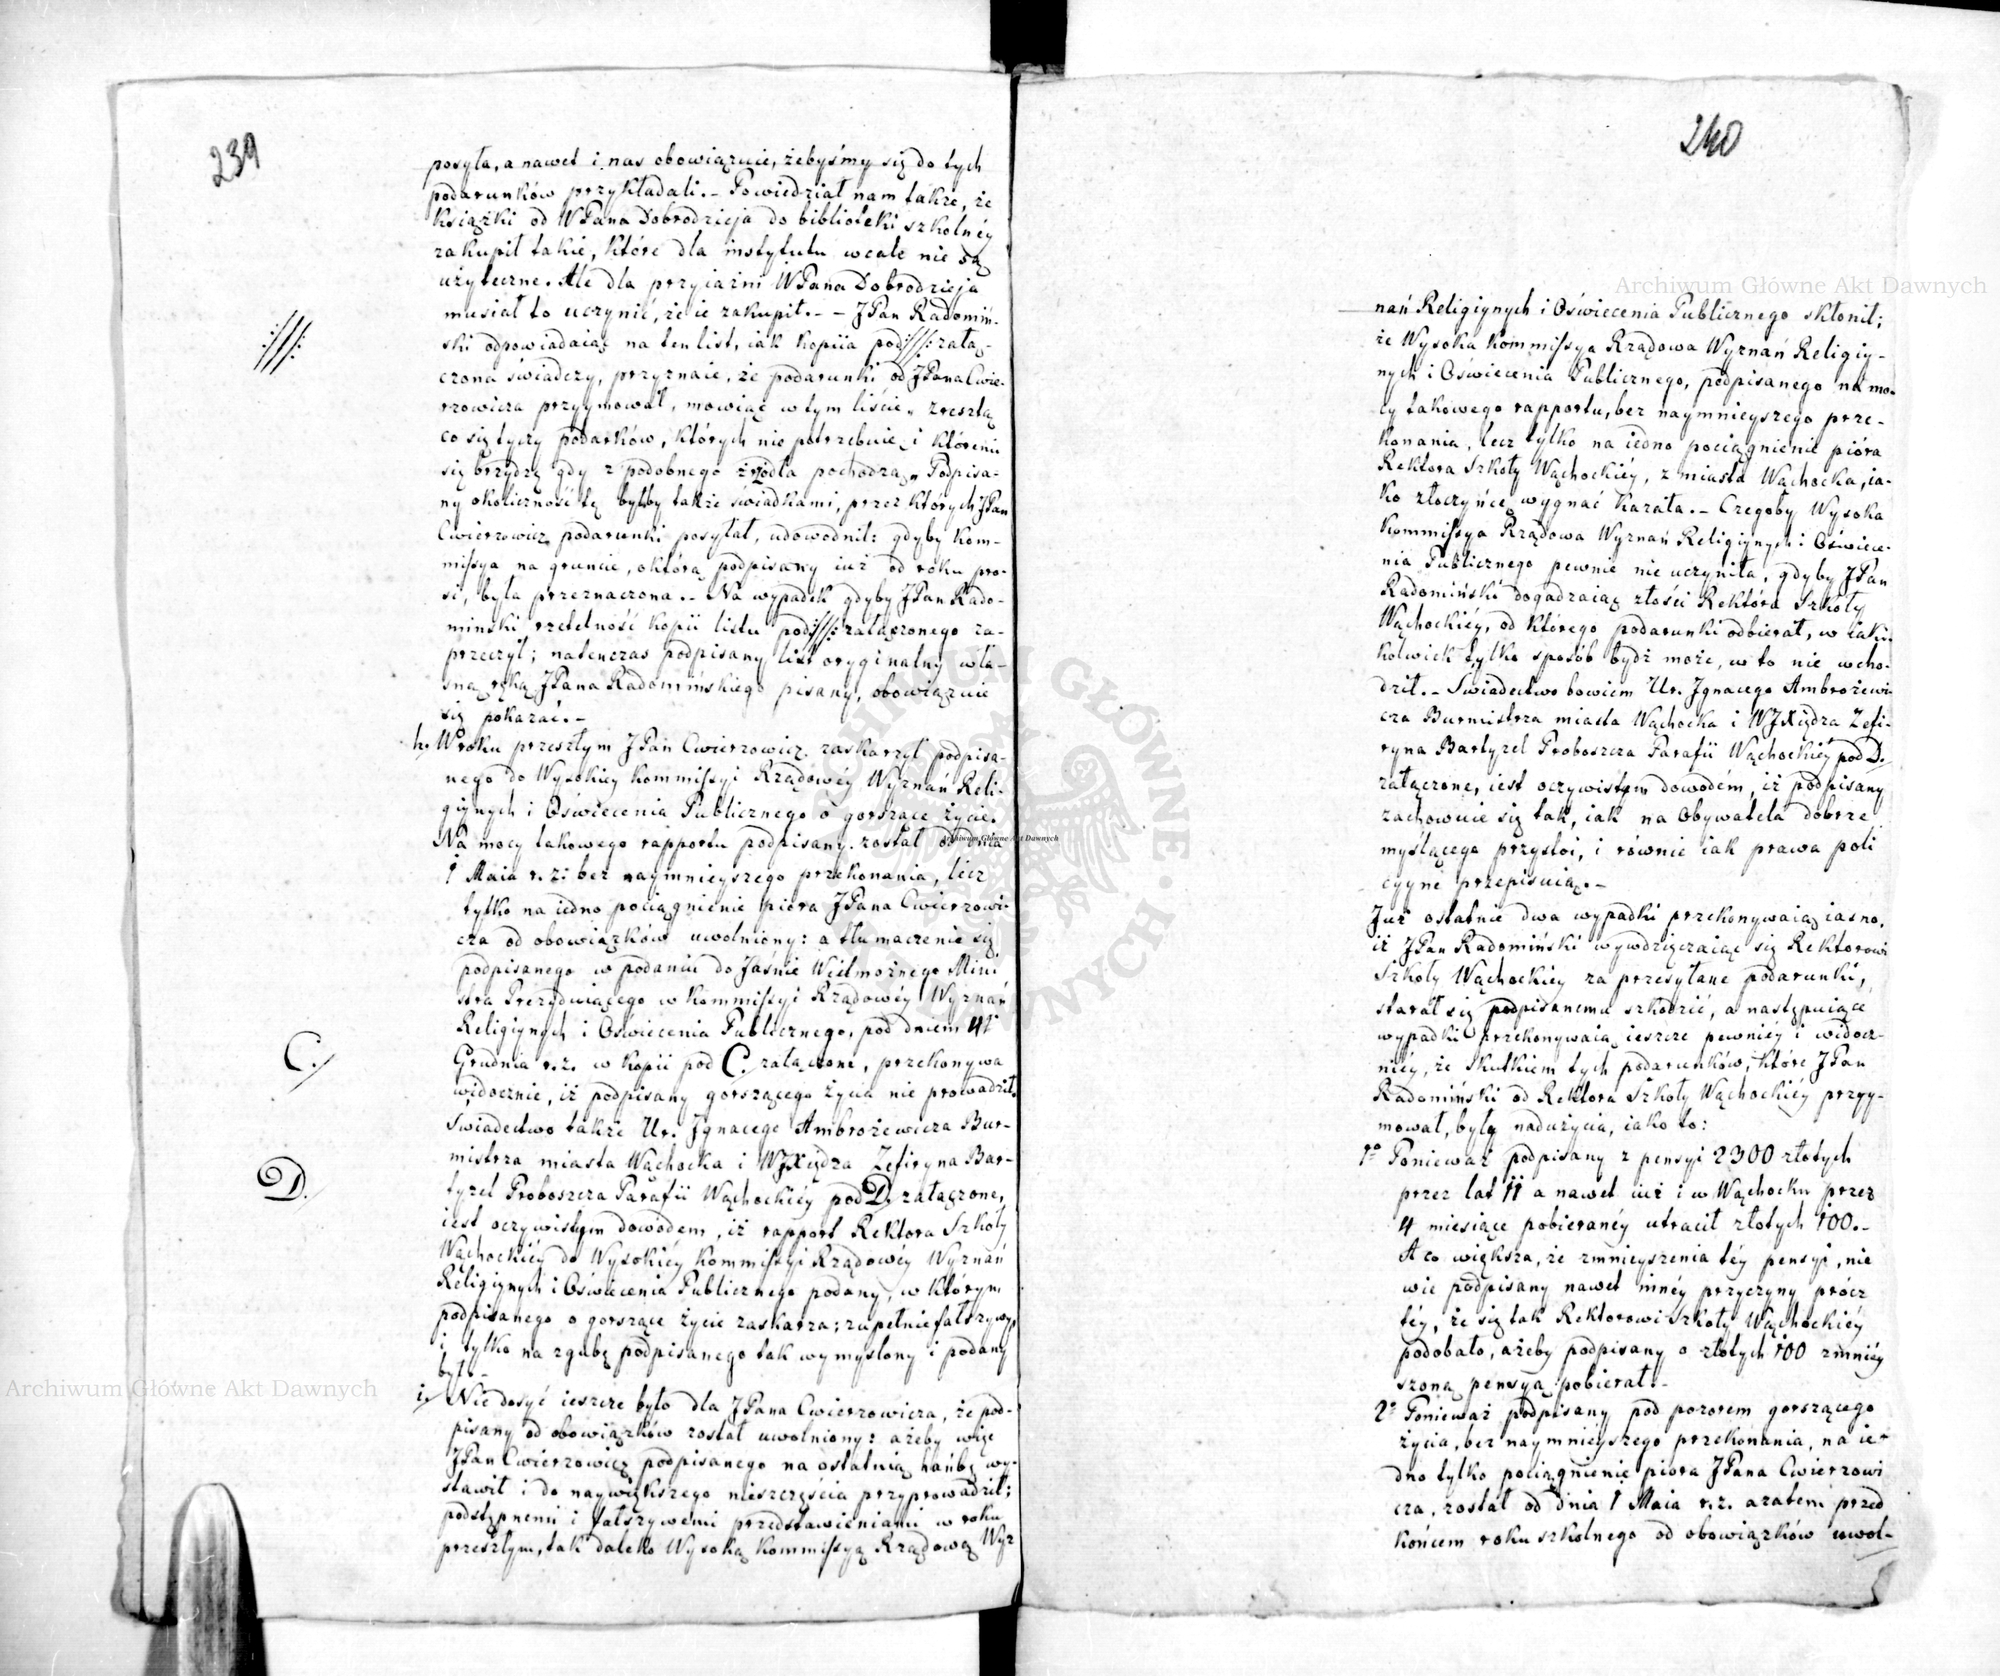 239
posyła, a nawet i nas obowiązuie, żebyśmy się do tych
podarunków przykładali. – Powiedział nam także, że
książki od WPana Dobrodzieja do biblioteki szkolnéy
zakupił takie, które dla instytutu wcale nie są
użyteczne. Ale dla przyiaźni WPana Dobrodzieja
musiał to uczynić, że ie zakupił. – – JPan Radomiń-
ski odpowiadaiąc na ten list, iak kopiia pod :///: załą-
:///:
czona świadczy, przyznaie, że podarunki od JPana Cwie-
rzowicza przyymował, mówiąc w tym liście „ zresztą
co się tyczy podarków, których nie potrzebuię i któremi
się brzydzę gdy z podobnego źrzódła pochodzą „ Podpisa-
ny okoliczność tę byłby także świadkami, przez których JPan
Cwierzowicz podarunki posyłał, udowodnił: gdyby Kom-
missya na gruncie, o którą podpisany iuż od roku pro-
si, była przeznaczona. – Na wypadek gdyby JPan Rado-
minski rzetelność kopii listu pod :///: załączonego za-
przeczył; natenczas podpisany list oryginalny wła-
sną ręką JPana Radomińskiego pisany, obowiązuie
się pokazać. –
h. W roku przeszłym JPan Cwierzowicz zaskarżył podpisa-
nego do Wysokiey Kommissyi Rządowéy Wyznań Reli-
giynych i Oświecenia Publicznego o gorszące życie.
Na mocy takowego rapportu podpisany został od dnia
1 Maia r. z: bez naymnieyszego przekonania, lecz
tylko na iedno pociągnienie pióra JPana Cwierzowi-
cza od obowiązków uwolniony: a tłumaczenie się
podpisanego w podaniu do Jaśnie Wielmożnego Mini
stra Prezyduiącego w Kommissyi Rządowéy Wyznań
Religiynych i Oświecenia Publicznego, pod dniem 41
Grudnia r. z. w kopii pod C. załączone, przekonywa
C.
widocznie, iż podpisany gorszącego życia nie prowadził.
Swiadectwo także Ur. Jgnacego Ambrożewicza Bur-
mistrza miasta Wąchocka i WJXiędza Zefiryna Bar-
D.
tyzel Proboszcza Parafii Wąchockiéy pod D. załączone,
iest oczywistym dowodem, iż rapport Rektora Szkoły
Wąchockiéy do Wysokiéy Kommissyi Rządowéy Wyznań
Religiynych i Oświecenia Publicznego podany, w którym
podpisanego o gorszące życie zaskarża; zupełnie fałszywy,
i tylko na zgubę podpisanego tak wymyślony i podany
był. –
i. Nie dosyć ieszcze było dla JPana Cwierzowicza, że pod-
pisany od obowiązków został uwolniony: ażeby więc
JPan Cwierzowicz podpisanego na ostatnią hańbę wy-
stawił i do naywiększego nieszczęścia przyprowadził;
podstępnemi i fałszywemi przedstawieniami w roku
przeszłym, tak daleko Wysoką Kommissyą Rządową Wyz
240
nań Religiynych i Oświecenia Publicznego skłonił;
że Wysoka Kommissya Rządowa Wyznań Religiy-
nych i Oświecenia Publicznego, podpisanego na mo-
cy takowego rapportu, bez naymnieyszego prze-
konania, lecz tylko na iedno pociągnienie pióra
Rektora Szkoły Wąchockiéy, z miasta Wąchocka, ia-
ko złoczyńcę wygnać kazała. – Czegoby Wysoka
Kommissya Rządowa Wyznań Religiynych i Oświece-
nia Publicznego pewnie nie uczyniła, gdyby JPan
Radomiński dogadzaiąc złości Rektóra Szkoły
Wąchockiéy, od którego podarunki odbierał, w iaki-
kolwiek tylko sposób bydź może, w to nie wcho-
dził. – Swiadectwo bowiem Ur. Jgnacego Ambrożewi-
cza Burmistrza miasta Wąchocka i WJXiędza Zefi-
ryna Bartyzel Proboszcza Parafii Wąchockiéy pod D.
załączone, iest oczywistym dowodém, iż podpisany
zachowuie się tak, iak na Obywatela dobrze
myślącego przystoi, i równie iak prawa poli
cyyne przepisuią. –
Już ostatnie dwa wypadki przekonywaią iasno,
iż JPan Radomiński wywdzięczaiąc się Rektorowi
Szkoły Wąchockiéy za przesyłane podarunki,
starał się podpisanemu szkodzić, a następuiące
wypadki przekonywaią ieszcze pewniéy i widocz-
niéy, że skutkiem tych podarunków, które JPan
Radomiński od Rektora Szkoły Wąchockiéy przyy-
mował, były nadużycia, iako to:
1o Ponieważ podpisany z pensyi 2300 złotych
przez lat 11 a nawet iuż i w Wąchocku przez
4 miesiące pobieranéy utracił złotych 100. –
A co większa, że zmnieyszenia téy pensyi, nie
wie podpisany nawet innéy przyczyny prócz
téy, że się tak Rektorowi Szkoły Wąchockiéy
podobało, ażeby podpisany o złotych 100 zmniéy
szoną pensyą pobierał. –
2o Ponieważ podpisany pod pozorem gorszącego
życia, bez naymnieyszego przekonania, na ie-
dno tylko pociągnienie pióra JPana Cwierzowi
cza, został od dnia 1 Maia r. z. a zatem przed
końcem roku szkolnego od obowiązków uwol-
Archiwum Główne Akt Dawnych
Archiwum Główne Akt Dawnych
Archiwum Główne Akt Dawnych